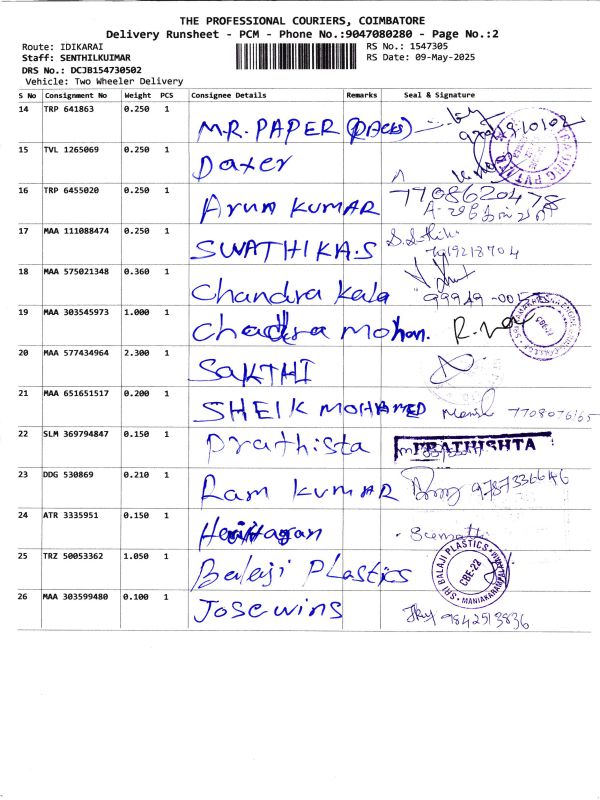 THE PROFESSIONAL COURIERS, COIMBATORE
Delivery Runsheet - PCM - Phone No.:9047080280 - Page No.:2
Route: IDIKARAI RS No.: 1547305
Staff: SENTHILKUIMAR RS Date: 09-May-2025
DRS No.: DCJB154730502
Vehicle: Two Wheeler Delivery
S No Consignment No Weight PCS Consignee Details Remarks Seal & Signature
14 TRP 641863 0.250 1 M.R. PAPER
15 TVL 1265069 0.250 1 Daxer
16 TRP 6455020 0.250 1 Arun KUMAR 7708620478
17 MAA 111088474 0.250 1 SWATHIKA.S 7919218704
18 MAA 575021348 0.360 1 Chandra kala
19 MAA 303545973 1.000 1 Chadra mohan.
20 MAA 577434964 2.300 1 SAKTHI
21 MAA 651651517 0.200 1 SHEIK MOHAMED 7708076165
22 SLM 369794847 0.150 1 Prathista PRATHISHTA
23 DDG 530869 0.210 1 Ram KUMAR 9787336646
24 ATR 3335951 0.150 1
25 TRZ 50053362 1.050 1 Balaji PLastics SRI BALAJI PLASTICS CBE-22
26 MAA 303599480 0.100 1 Josewins 9842513836